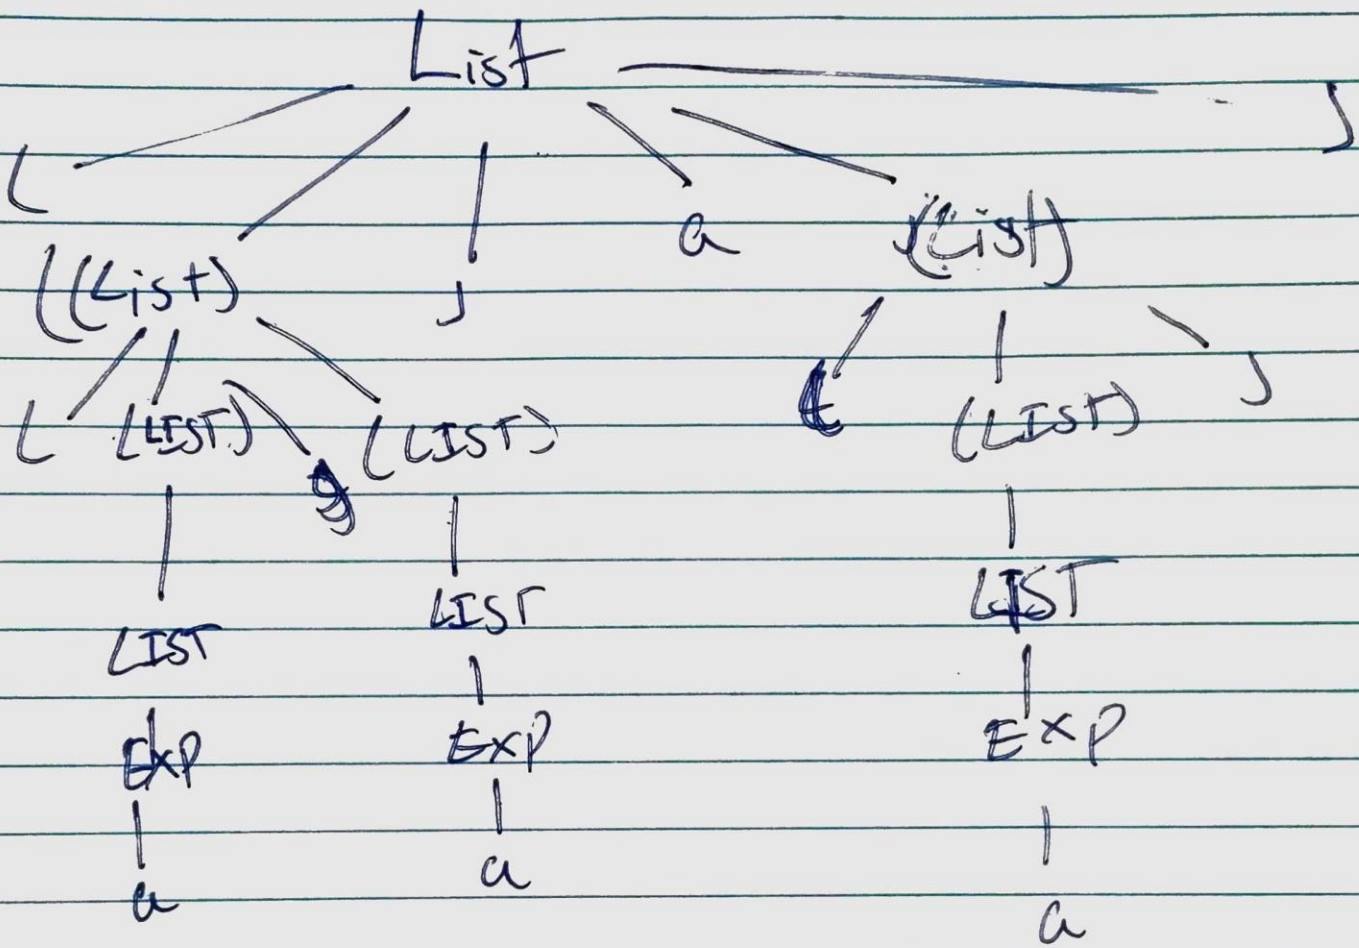 List
( )
a (List)
((List) ,
( )
( (LIST) (LIST) (LIST)
LIST LIST
LIST
EXP EXP EXP
a a a